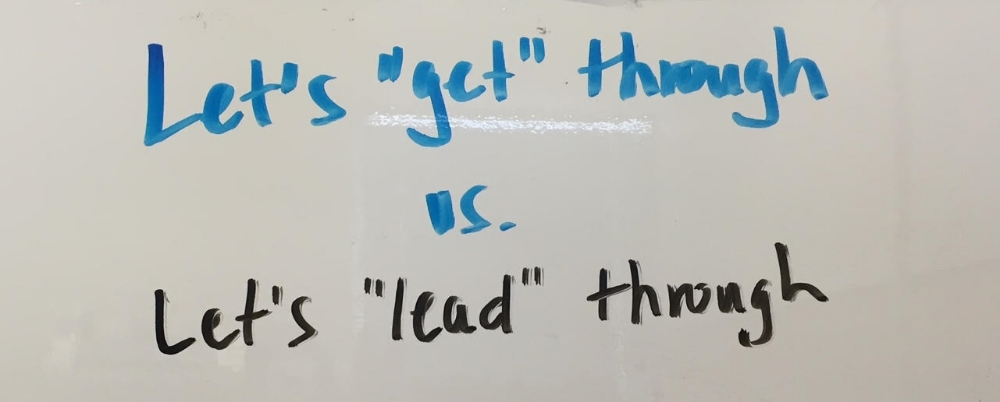 Let's "get" through
vs.
Let's "lead" through